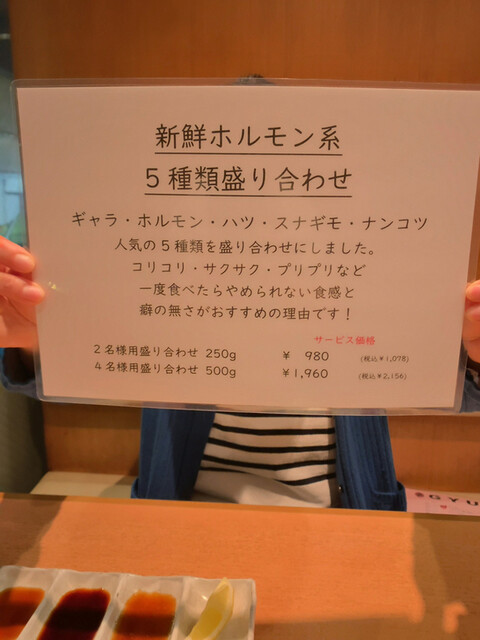 新鮮ホルモン系
5種類盛り合わせ
ギャラ・ホルモン・ハツ・スナギモ・ナンコツ
人気の5種類を盛り合わせにしました。
コリコリ・サクサク・プリプリなど
一度食べたらやめられない食感と
癖の無さがおすすめの理由です!
サービス価格
2名様用盛り合わせ 250g ¥ 980 (税込¥1,078)
4名様用盛り合わせ 500g ¥1,960 (税込¥2,156)
GYU